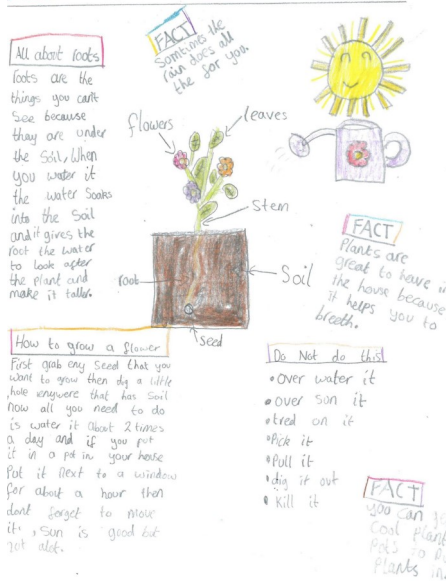 All about roots
roots are the
things you can't
see because
thay are under
the Soil, When
you water it
the water Soaks
into the Soil
and it gives the
root the water
to look after
the plant and
make it taller.
FACT
Somtimes the
rain does all
the for you.
flowers
leaves
stem
Soil
root
seed
FACT
Plants are
great to heave
the house because
It helps you to
breeth.
How to grow a flower
First grab eny Seed that you
want to grow then dig a little
hole enywere that has Soil
now all you need to do
is water it about 2 times
a day and if you put
it in a pot in your house
Put it next to a window
for about a hour then
dont forget to move
it, Sun is good but
not alot.
Do Not do this!
• over water it
• over sun it
• tred on it
• Pick it
• Pull it
• dig it out
• Kill it
FACT
you can
Cool plant
Pots to
Plants